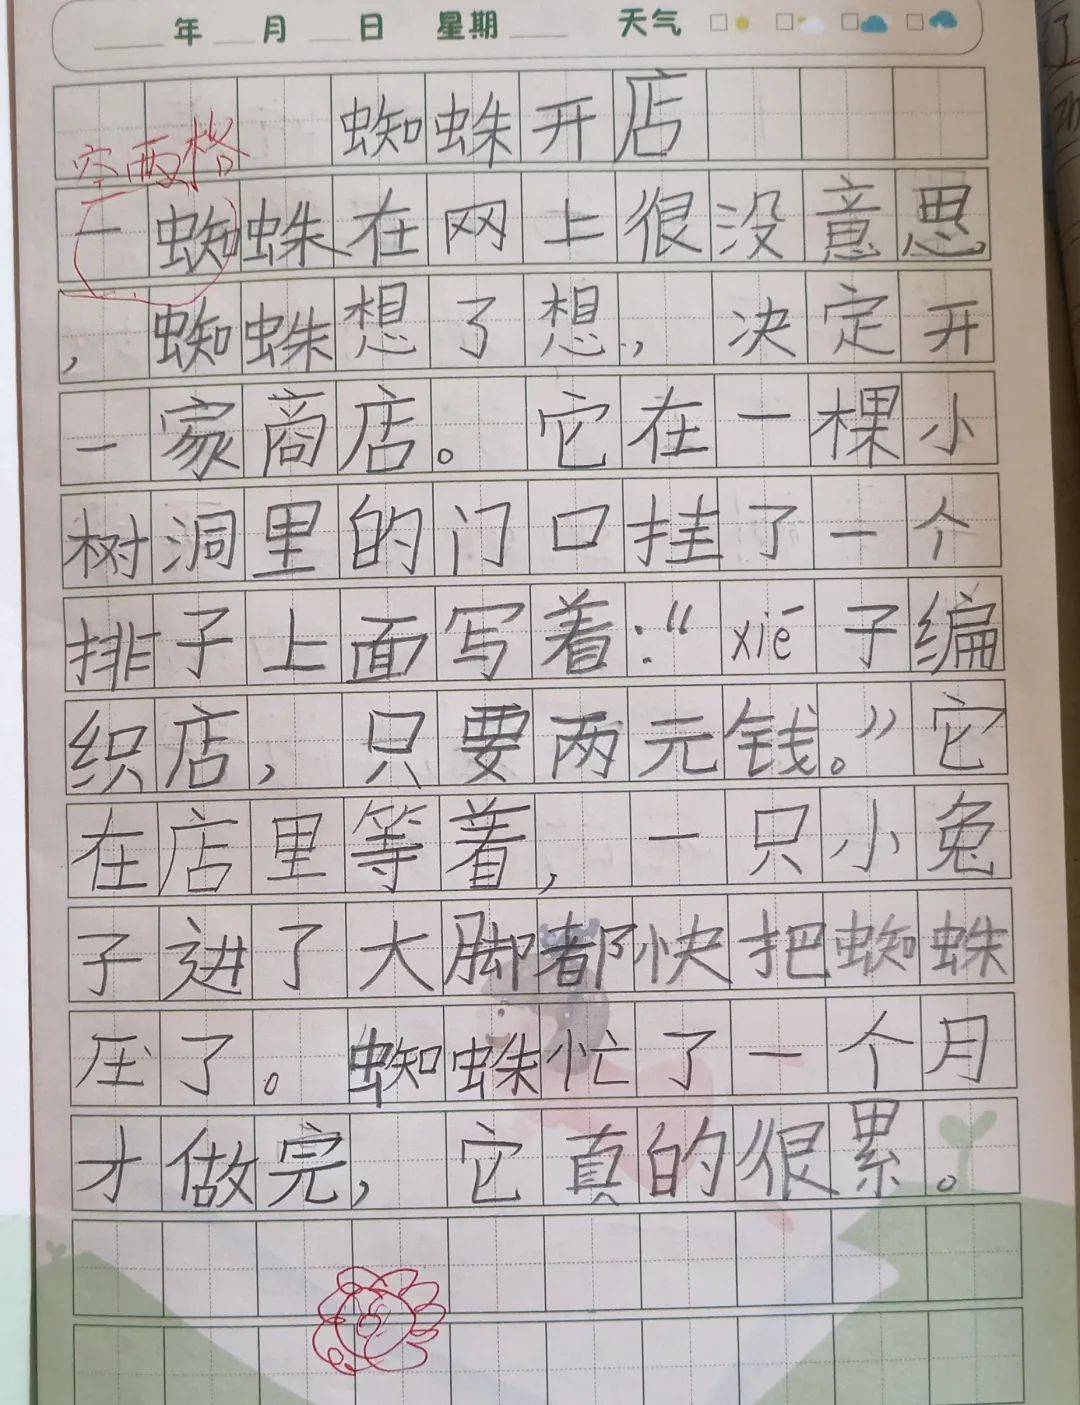 年 月 日 星期 天气
蜘蛛开店
空两格
一蜘蛛在网上很没意思
，蜘蛛想了想，决定开
一家商店。它在一棵小
树洞里的门口挂了一个
排子上面写着：“xiē子编
织店，只要两元钱。”它
在店里等着，一只小兔
子进了大脚都快把蜘蛛
压了。蜘蛛忙了一个月
才做完，它真的很累。